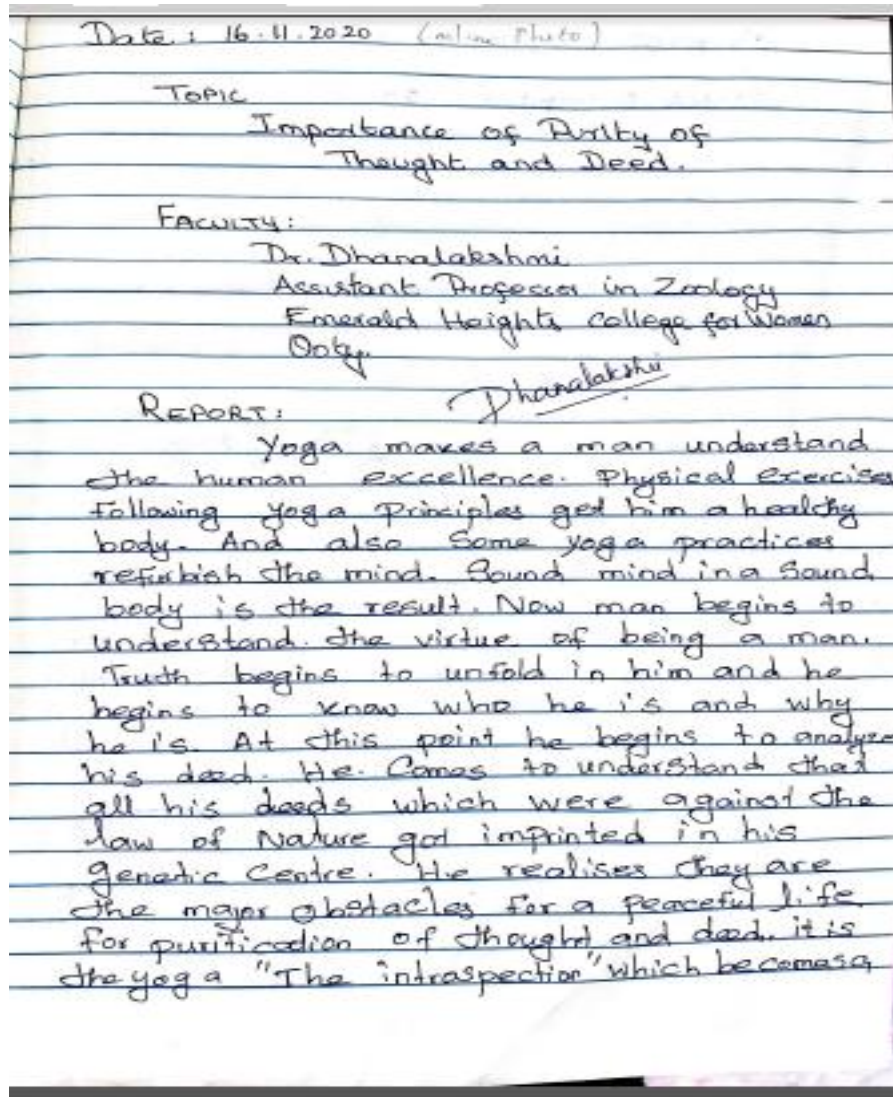 Date : 16.11.2020 (online Photo)
TOPIC
Importance of Purity of
Thought and Deed.
FACULTY:
Dr. Dhanalakshmi
Assistant Professor in Zoology
Emerald Heights College for Women
Ooty.
Dhanalakshmi
REPORT:
Yoga makes a man understand
the human excellence. Physical exercises
following yoga Principles get him a healthy
body. And also Some yoga practices
refurbish the mind. Sound mind in a Sound
body is the result. Now man begins to
understand. the virtue of being a man.
Truth begins to unfold in him and he
begins to know who he is and why
he is. At this point he begins to analyze
his deed. He. Comes to understand that
all his deeds which were against the
law of Nature got imprinted in his
genetic Centre. He realises they are
the major obstacles for a peaceful life
for purification of thought and deed. it is
the yoga "The intraspection" which becomes a